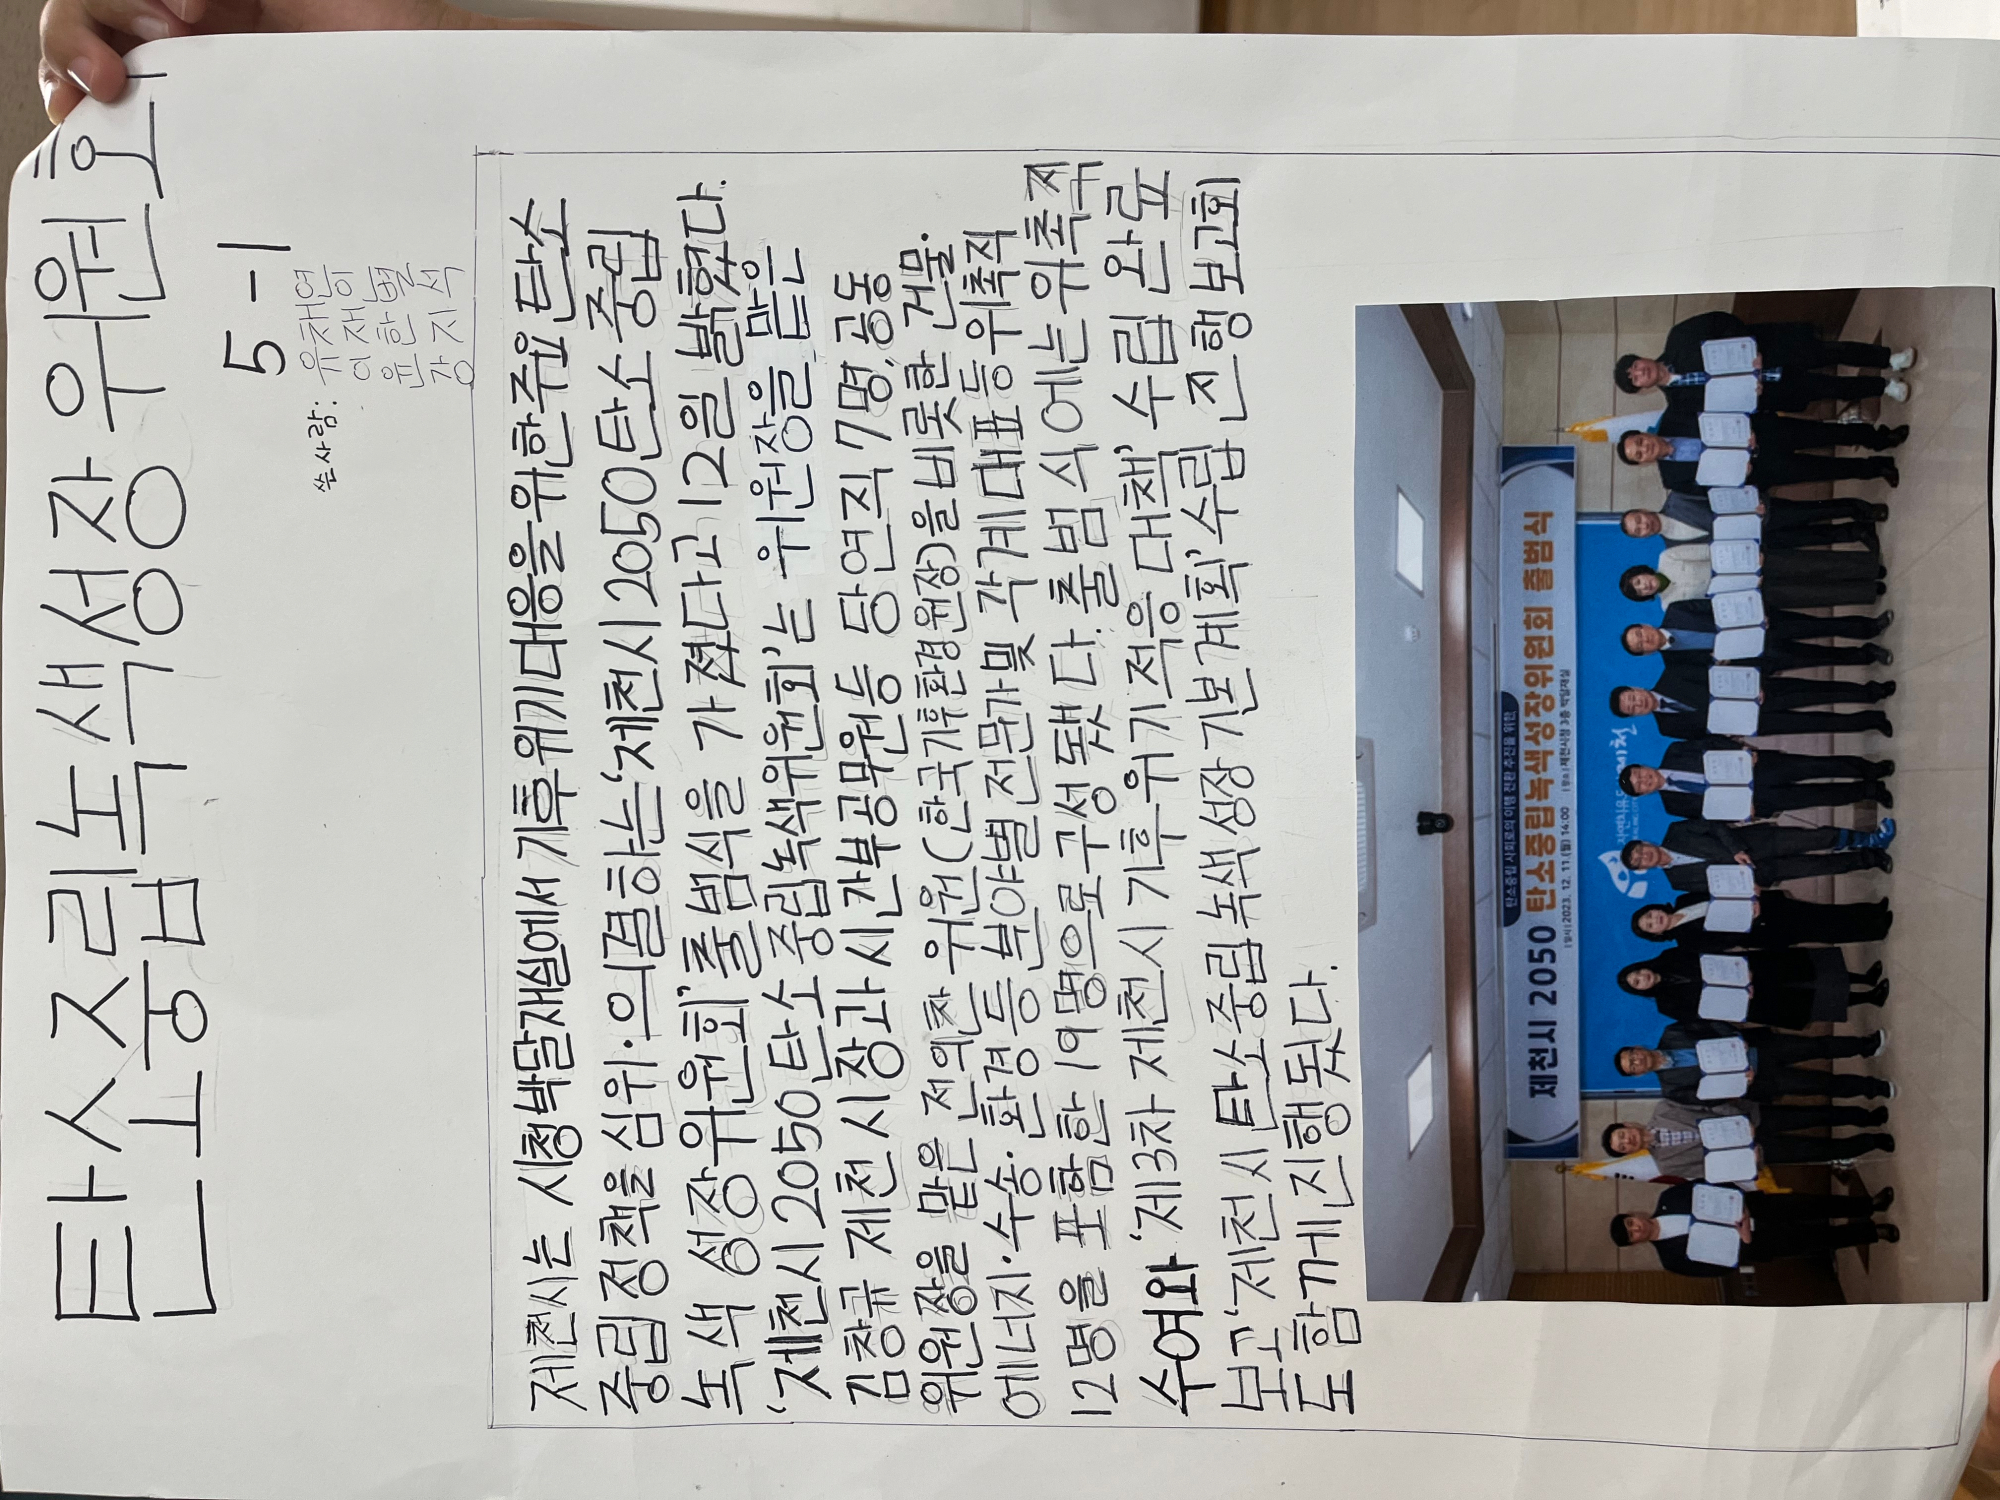 탄소중립녹색성장위원회
5-1
쓴사람: 유채연
이재이
윤한별
강지석
제천시는 시청박달재실에서 기후위기대응을위한주요탄소
중립정책을심위·의결하는'제천시2050탄소중립
녹색성장위원회'출범식을 가졌다고 12일 밝혔다.
'제천시2050탄소중립녹색위원회'는 위원장을 맡은
김창규 제천시장과시간부공무원등 당연직 7명,공동
위원장을 맡은 전의찬 위원(한국기후환경원장)을비롯한 건물·
에너지·수송·환경등 분야별전문가및 각계대표등위촉직
12명을 포함한 19명으로구성됐다.출범식에는위촉직
수여와 '제3차제천시기후위기적응대책' 수립 완료
보고'제천시 탄소중립녹색성장 기본계획'수립 진행 보고회
도함께진행됐다.
탄소중립 사회로의 이행 전환 추진을 위한
제천시 2050 탄소중립녹색성장위원회 출범식
|일시|2023. 12. 11.(월) 14:00 |장소|제천시청 3층 박달재실